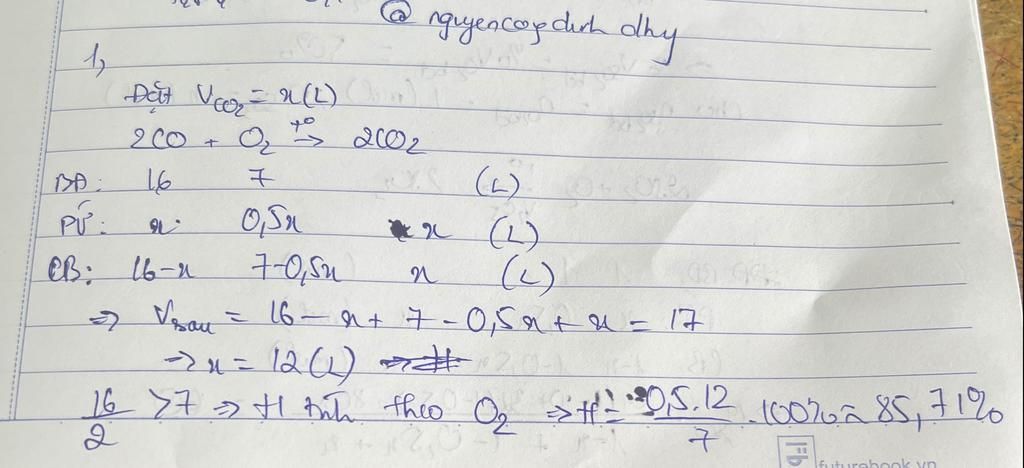 @ nguyencogdinh dhy
1,
Đặt V_CO2 = x(L)
2CO + O2 →^t° 2CO2
BĐ: 16 7 (L)
PỨ: x 0,5x x (L)
CB: 16-x 7-0,5x x (L)
⇒ V_sau = 16 - x + 7 - 0,5x + x = 17
⇒ x = 12(L)
16/2 > 7 ⇒ H tính theo O2 ⇒ H = 0,5.12/7 .100% ≈ 85,71%
futurebook.vn